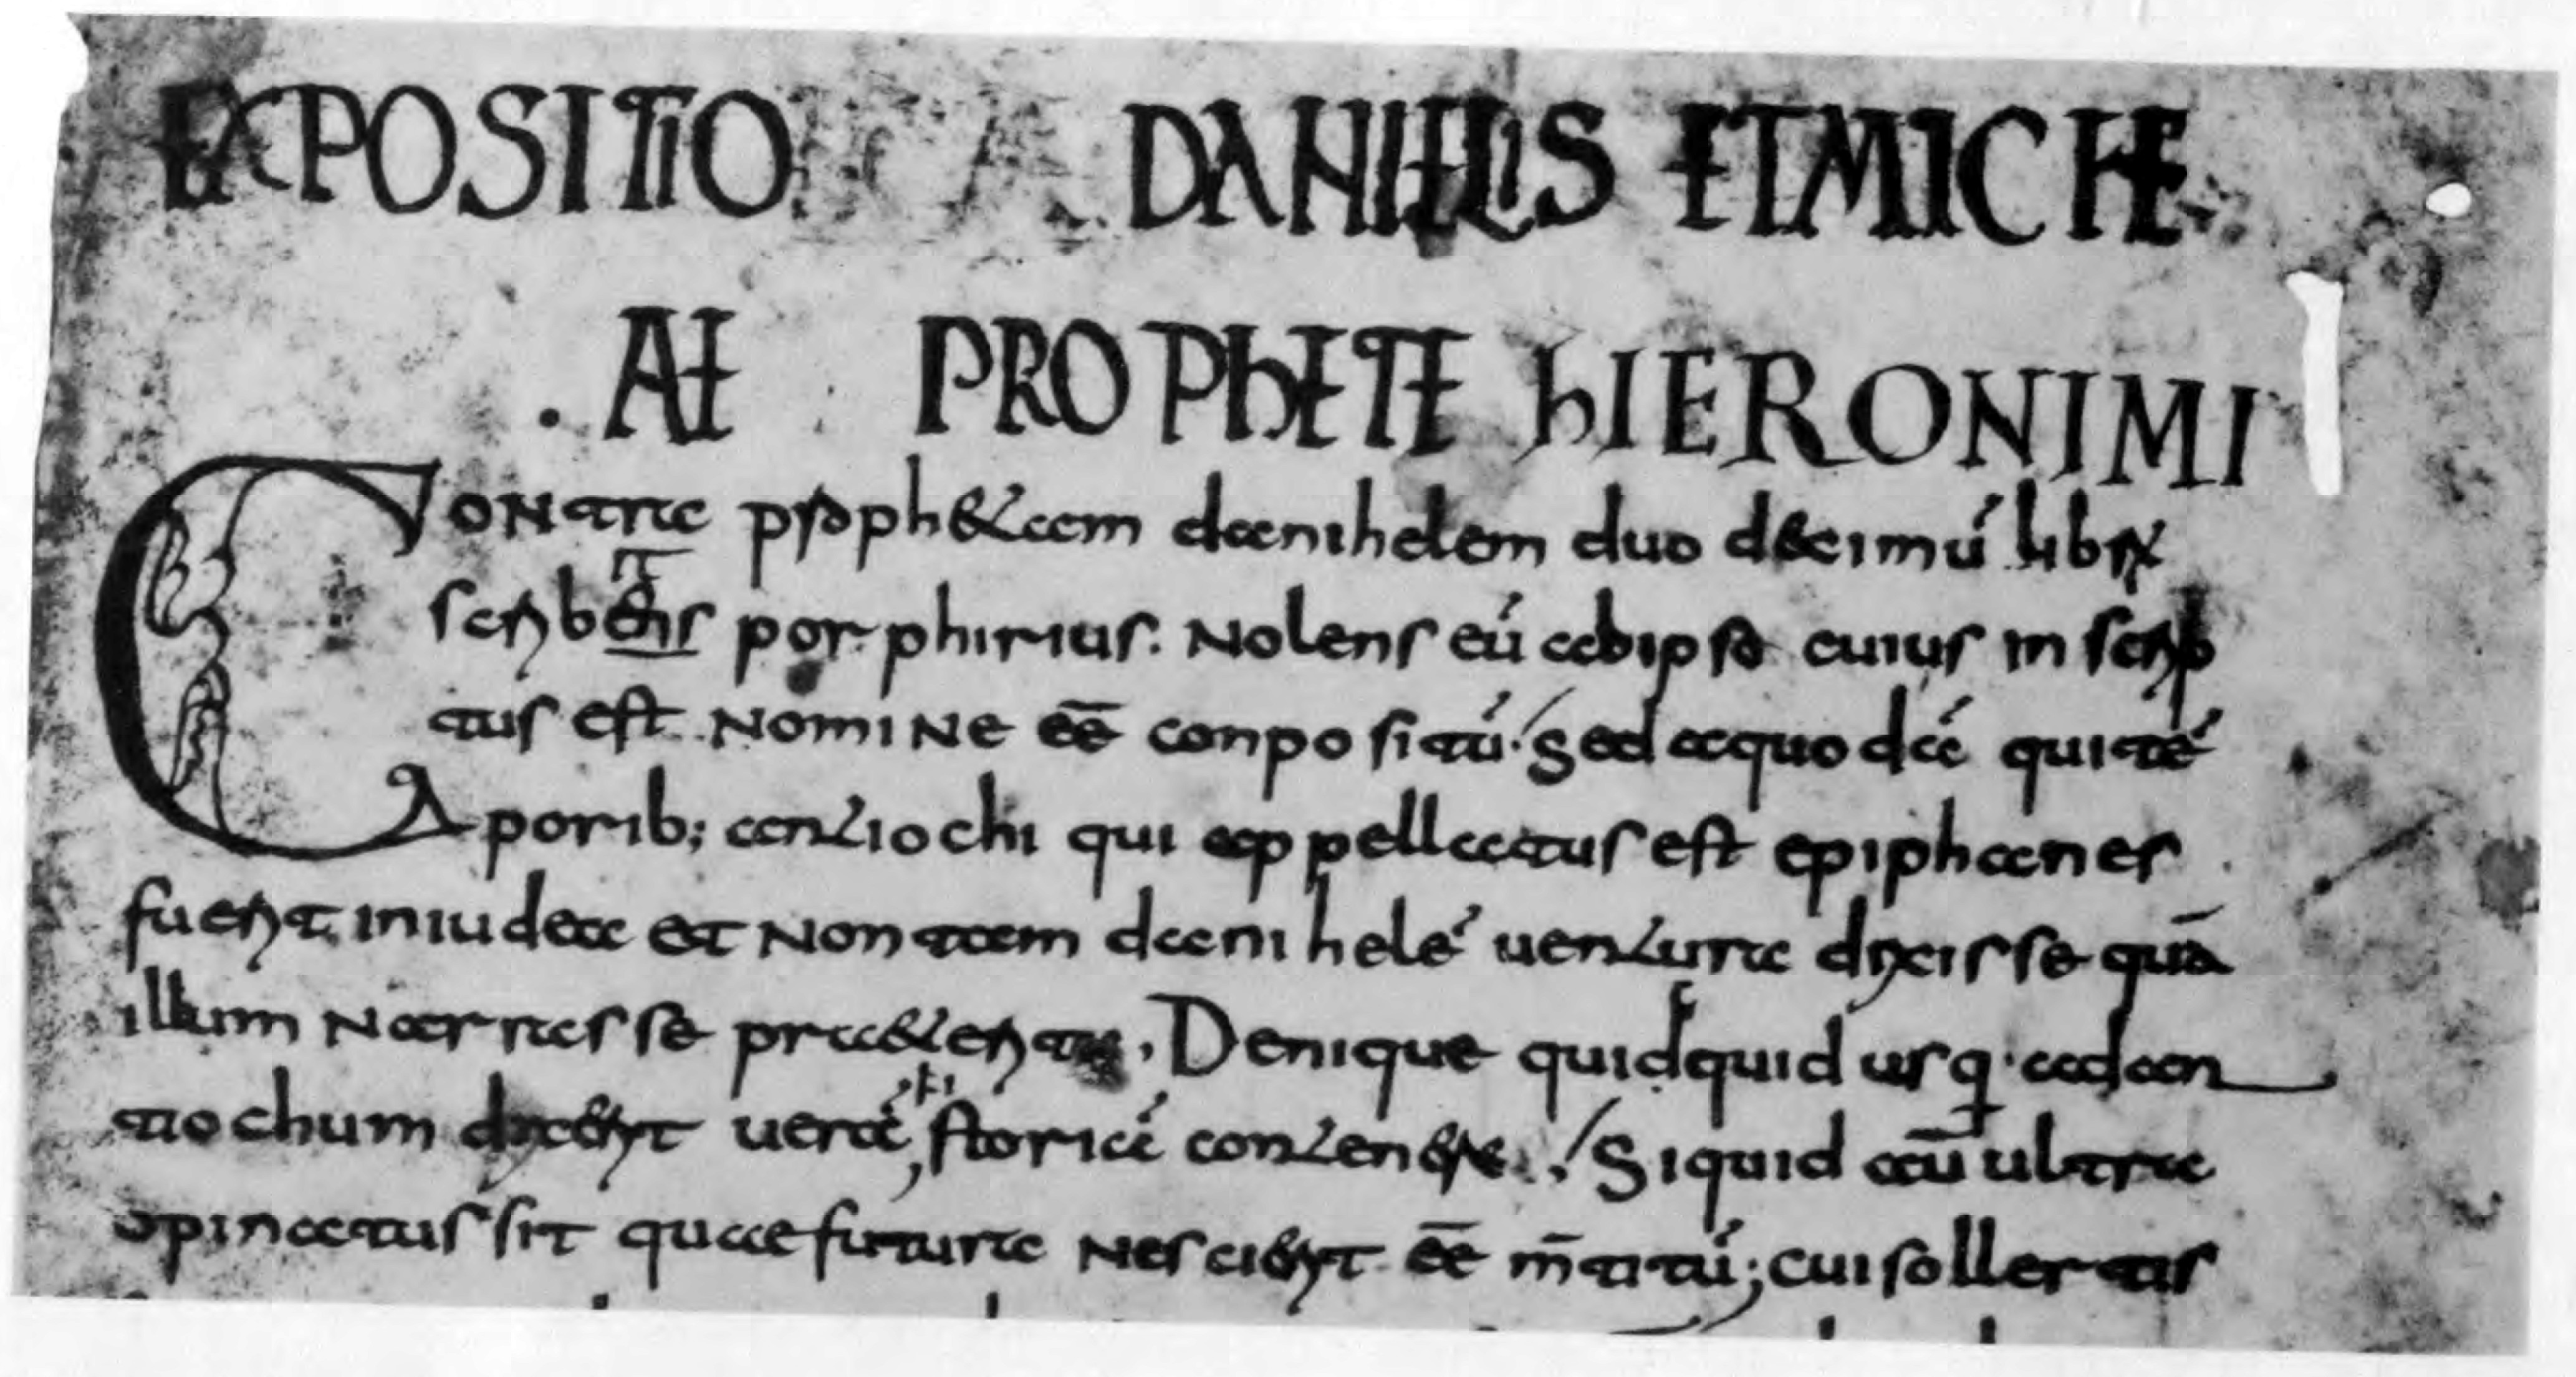 EXPOSITIO DANIELIS ET MICHE
AE PROPHETE hIERONIMI
CONtra prophetam danihelem duo decimū libꝝ
scribens porphirius. Nolens eū ab ipso cuius in scrip
tus est Nomine eē conpositū. Sed a quodā qui tē
porib; antiochi qui appellatus est epiphanes
fuerit in iudea et Non tam danihelē uentura dixisse quā
illum Narrasse praeterita. Denique quidquid usq· ad an
tiochum dixerit uerā storiā continere. Si quid aū ultra
opinatus sit quae futura Nescierit eē m̄titū; cui sollertis